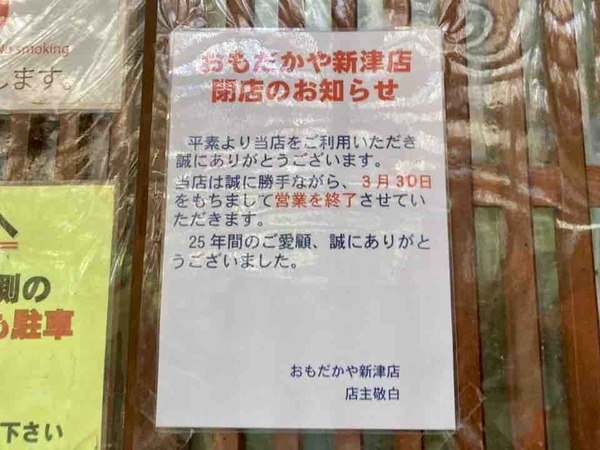 No smoking
します。
へ
側の
も駐車
下さい
おもだかや新津店
閉店のお知らせ
平素より当店をご利用いただき
誠にありがとうございます。
当店は誠に勝手ながら、3月30日
をもちまして営業を終了させてい
ただきます。
25年間のご愛顧、誠にありがと
うございました。
おもだかや新津店
店主敬白